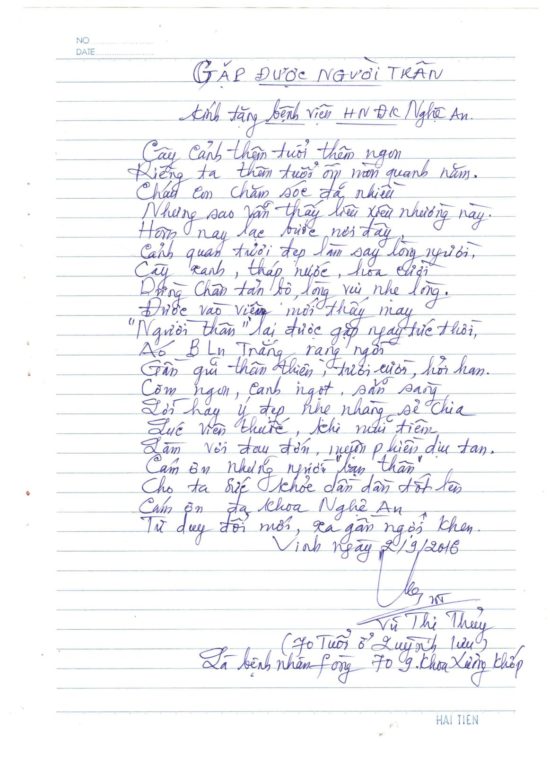 NO
DATE
GẶP ĐƯỢC NGƯỜI TRÂN
Kính tặng bệnh viện HN ĐK Nghệ An.
Cây cảnh thêm tuổi thêm ngon
Riêng ta thêm tuổi ốm mòn quanh năm.
Cháu con chăm sóc đã nhiều
Nhưng sao vẫn thấy liêu xiêu nhường này.
Hôm nay lạc bước nơi đây,
Cảnh quan tươi đẹp làm say lòng người,
Cây xanh, tháp nước, hoa cười
Dừng chân tản bộ, lòng vui nhẹ lòng.
Được vào viện mới thấy may
"Người thân" lại được gặp ngay tức thời,
Áo BLu Trắng rạng ngời
Gần gũi thân thiện, tươi cười, hỏi han.
Cơm ngon, canh ngọt, sẵn sàng
Lời hay ý đẹp nhẹ nhàng sẻ chia
Lúc viên thuốc, khi mũi tiêm
Làm vơi đau đớn, muộn phiền dịu tan.
Cảm ơn những người "bạn thân"
Cho ta sức khỏe dần dần tốt lên
Cảm ơn đa khoa Nghệ An
Tư duy đổi mới, xa gần ngợi khen.
Vinh ngày 2/9/2016
Vũ Thị Thủy
(70 Tuổi ở Quỳnh Lưu)
Là bệnh nhân fòng 70 9. Khoa Xương Khớp
HẢI TIẾN